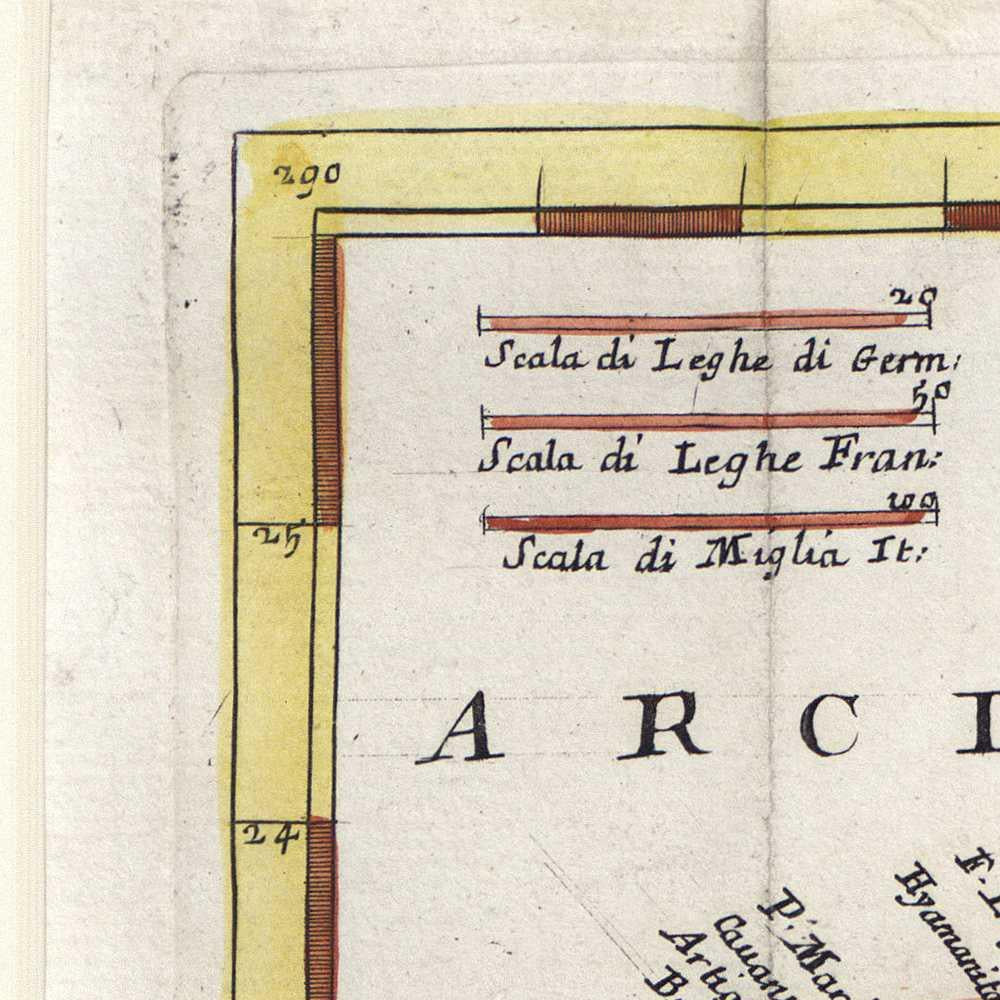 290
20
Scala di Leghe di Germ:
50
Scala di Leghe Fran:
100
Scala di Miglia It:
25
A R C I
24
F. L
Hyamanit
P. Mar
Cauan
Artig
B.